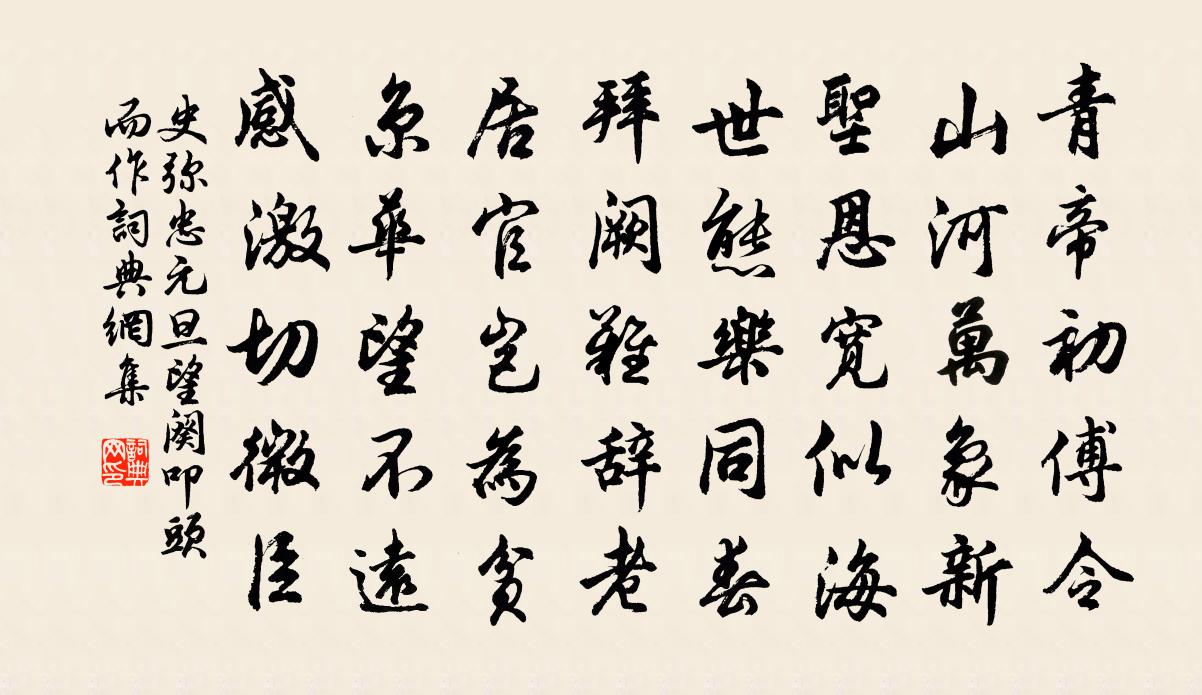 青帝初傅令
山河萬象新
聖恩寬似海
世態樂同春
拜闕難辞老
居官豈為貧
京華望不遠
感激切微臣
史弥忠元旦望闕叩頭
而作詞典網集
詞典網印